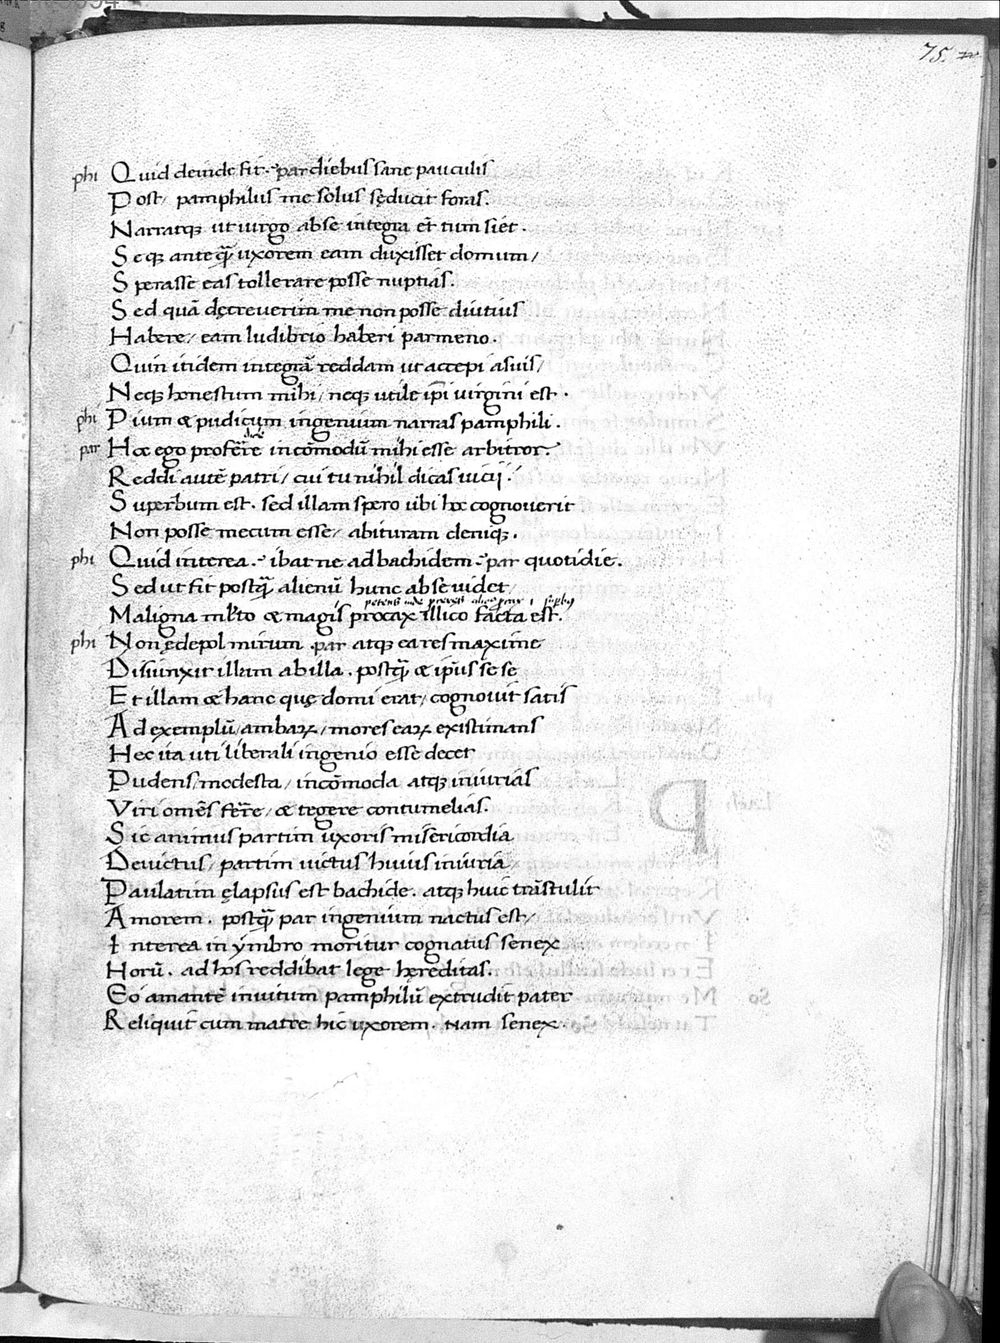 75.
phi Quid deinde fit. par diebus sane pauculis
Post/ pamphilus me solus sęducit foras.
Narratq; ut uirgo abse integra et tum siet.
Seq; ante q̃ uxorem eam duxisset domum/
Sperasse eas tollerare posse nuptias.
Sed quã dęcreuerim me non posse diutius
Habere/ eam ludibrio haberi parmeno.
Quin itidem integrã reddam ut accepi asuis/
Neq; honestum mihi/ neq; utile ip̃i uirgini est.
phi Pium & pudicum ingenium narras pamphili.
par Hoc ego proferre incõmodũ mihi esse arbitror.
Reddi autẽ patri/ cui tu nihil dicas uicij.
Superbum est. sed illam spero ubi hoc cognouerit
Non posse mecum esse/ abituram deniq;.
phi Quid interea. ibat ne ad bachidem. par quotidie.
Sed ut fit postq̃ alienũ hunc abse uidet/
Maligna ml̃to & magis procax illico facta est.
phi Non ędepol mirum. par atq; ea res maxime
Disiunxit illam ab illa. postq̃ & ip̃us se se
Et illam & hanc quę domi erat/ cognouit satis
Ad exemplũ/ ambaꝝ/ mores eaꝝ existimans
Hec ita uti liberali ingenio esse decet
Pudens/ modesta/ incõmoda atq; iniurias
Viri omẽs ferre/ & tegere contumelias.
Sic animus partim uxoris misericordia
Deuictus/ partim uictus huius iniuria
Paulatim ęlapsus est bachide. atq; huic trãstulit
Amorem. postq̃ par ingenium nactus est/
Interea in ymbro moritur cognatus senex
Horũ. ad hos reddibat lege hęreditas.
Eo amantẽ inuitum pamphilũ extrudit pater
Reliquit cum matre hic uxorem. Nam senex.